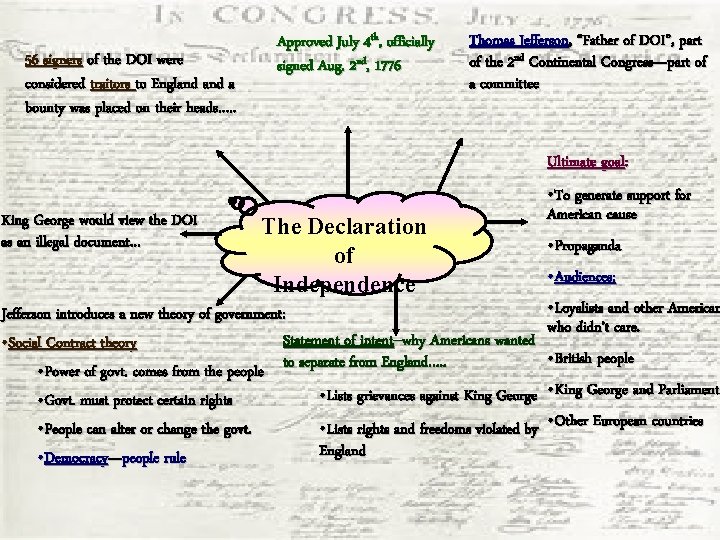 IN CONGRESS, JULY 4, 1776.
56 signers of the DOI were
considered traitors to England and a
bounty was placed on their heads.....
Approved July 4th, officially
signed Aug. 2nd, 1776
Thomas Jefferson, “Father of DOI”, part
of the 2nd Continental Congress—part of
a committee
King George would view the DOI
as an illegal document...
The Declaration
of
Independence
Ultimate goal:
•To generate support for
American cause
•Propaganda
•Audiences:
•Loyalists and other American
who didn’t care.
•British people
•King George and Parliament
•Other European countries
Jefferson introduces a new theory of government:
•Social Contract theory
•Power of govt. comes from the people
•Govt. must protect certain rights
•People can alter or change the govt.
•Democracy—people rule
Statement of intent--why Americans wanted
to separate from England.....
•Lists grievances against King George
•Lists rights and freedoms violated by
England